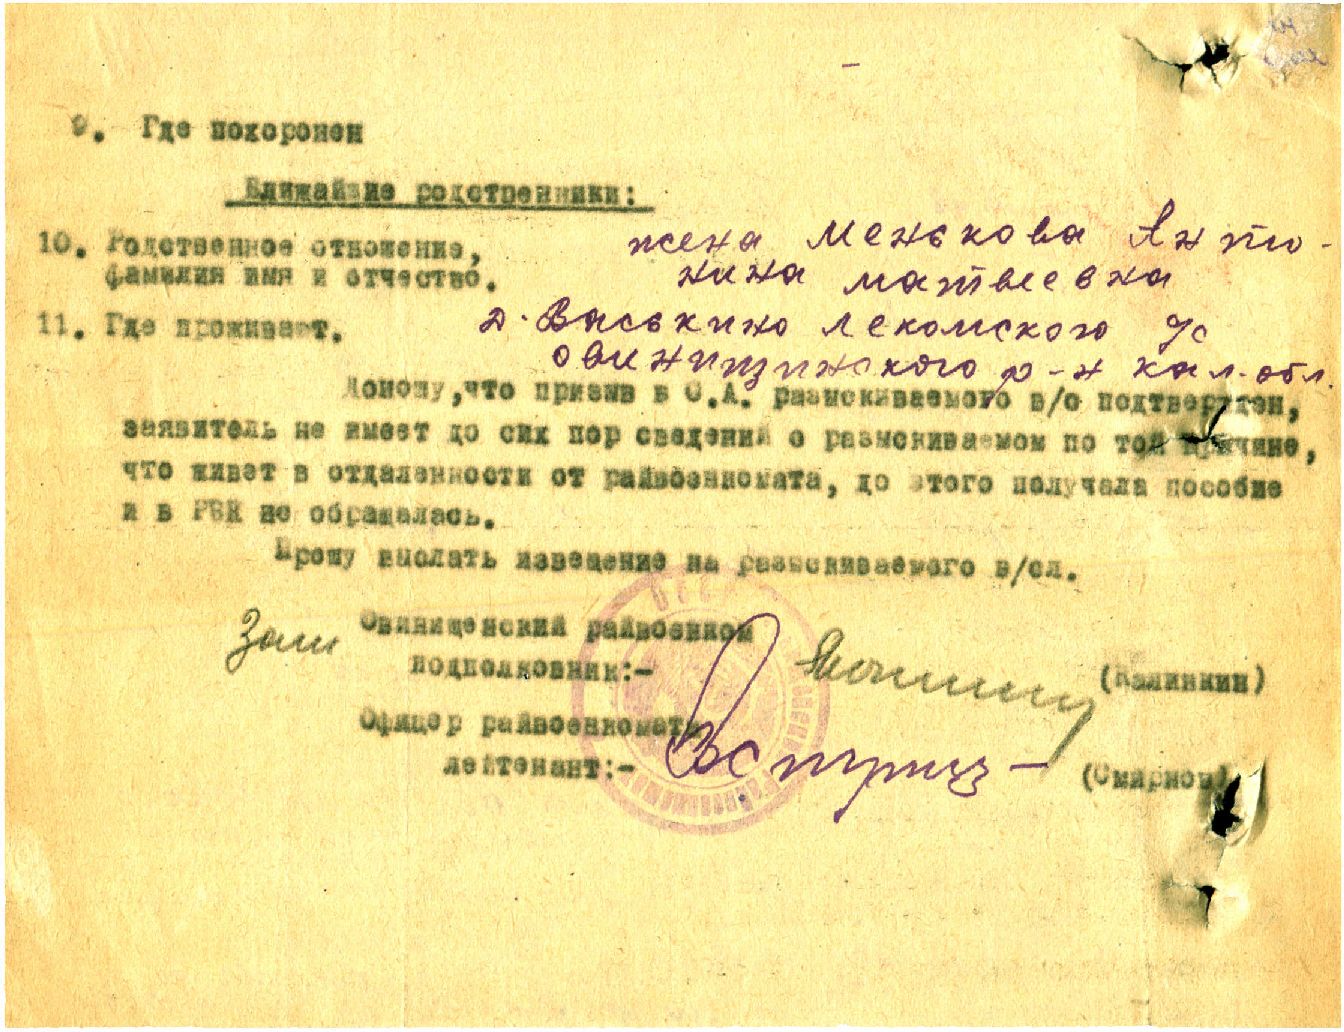 9. Где похоронен
Ближайшие родственники:
10. Родственное отношение, жена Менькова Анто-
фамилия имя и отчество. нина Матвеевна
11. Где проживает. д. Васькино Лекомского с/с
Овинищинского р-н кал. обл.
Доношу, что призыв в С.А. разыскиваемого в/с подтвержден,
заявитель не имеет до сих пор сведений о разыскиваемом по той причине,
что живет в отдаленности от райвоенкомата, до этого получала пособие
и в РВК не обращалась.
Прошу выслать извещение на разыскиваемого в/сл.
Овинищенский райвоенком
подполковник:- (Калинкин)
Офицер райвоенкомата
лейтенант:- (Смирнов)